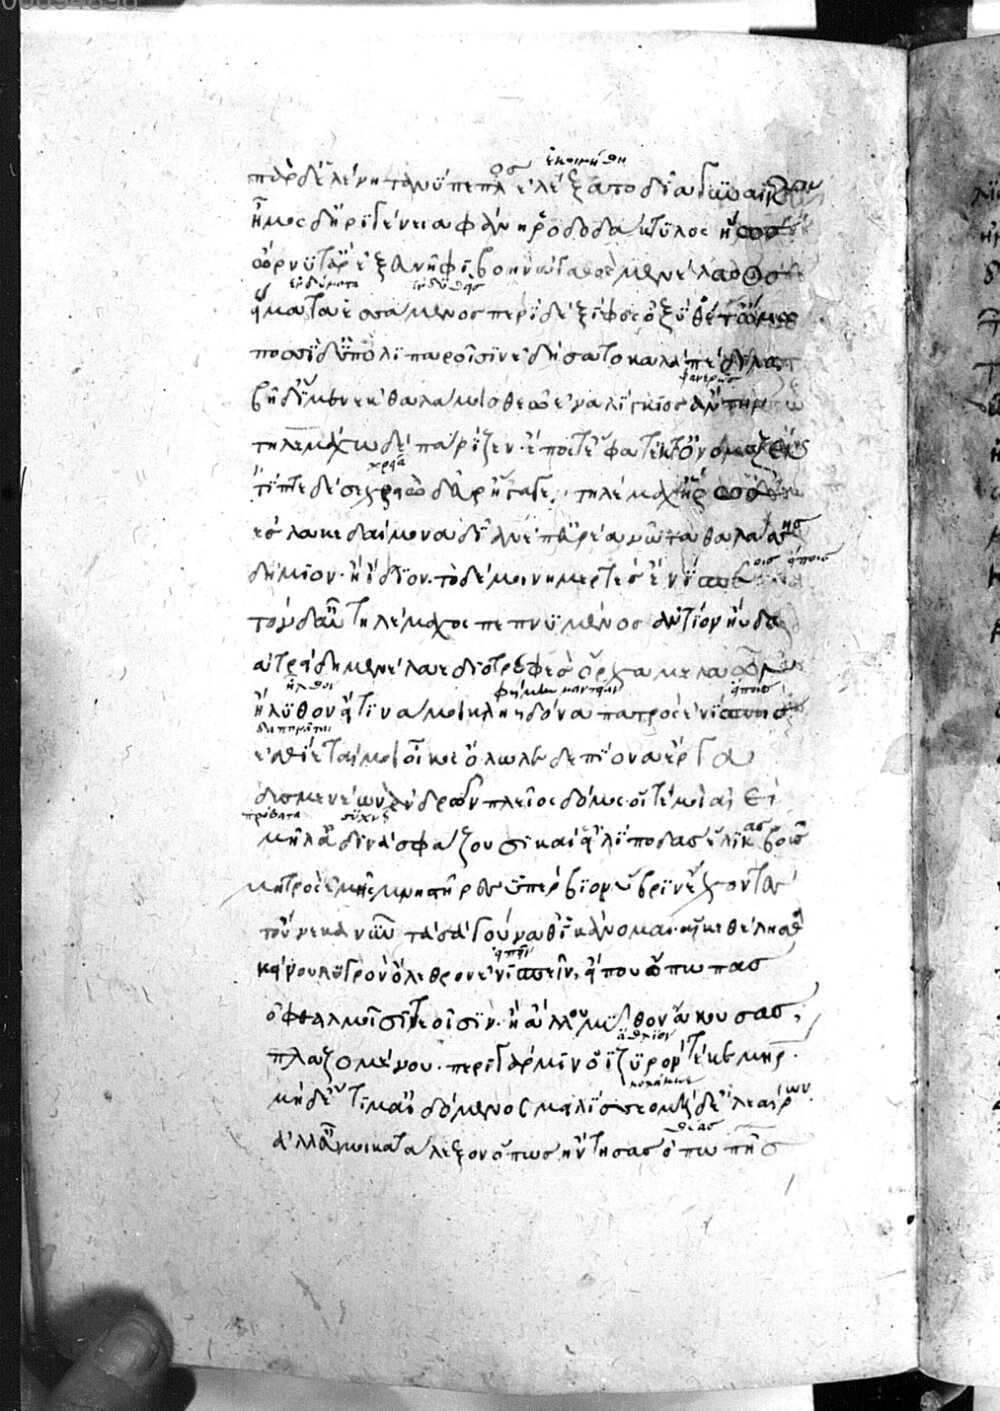 ἐκοιμήθη
παρδ' ἑλένη τανύπεπλος ἐλέξατο δῖα γυναικῶν
ἦμος δ' ἠριγένεια φάνη ῥοδοδάκτυλος ἠὼς
ὤρνυτ' ἄρ' ἐξ εὐνῆφι βοὴν ἀγαθὸς μενέλαος
ἐνδύματα ἐνδυθεὶς
εἵματα ἑσσάμενος περὶ δὲ ξίφος ὀξὺ θέτ' ὤμω
ποσσὶ δ' ὑπὸ λιπαροῖσιν ἐδήσατο καλὰ πέδιλα
φανερῶς
βῆ δ' ἴμεν ἐκ θαλάμοιο θεῶ ἐναλίγκιος ἄντην
τηλεμάχω δὲ παρίζεν· ἔπος τ' ἔφατ' ἔκ τ' ὀνόμαζεν
χρεία
τίπτε δέ σε χρειὼ δεῦρ' ἤγαγε, τηλέμαχ' ἥρως
ἐς λακεδαίμονα δῖαν ἐπ' εὐρέα νῶτα θαλάσσης
δήμιον· ἢ ἴδιον· τὸ δέ μοι νημερτὲς ἐνίσπες
τὸν δ' αὖ τηλέμαχος πεπνυμένος ἀντίον ηὔδα
ἀτρείδη μενέλαε διοτρεφὲς ὄρχαμε λαῶν
ἦλθον φήμην μαντείαν εἴποις
ἤλυθον εἴ τινά μοι κληηδόνα πατρὸς ἐνίσποις
δαπανᾶται
ἐσθίεταί μοι οἶκος ὄλωλε δὲ πίονα ἔργα
δυσμενέων δ' ἀνδρῶν πλεῖος δόμος· οἵ τέ μοι αἰεὶ
πρόβατα συχνῶς
μῆλ' ἀδινὰ σφάζουσι καὶ εἰλίποδας ἕλικας βοῦς
μητρὸς ἐμῆς μνηστῆρες ὑπέρβιον ὕβριν ἔχοντες
τοὔνεκα νῦν τὰ σὰ γούναθ' ἱκάνομαι· αἴ κ' ἐθέλησθα
εἰπεῖν
κείνου λυγρὸν ὄλεθρον ἐνισπεῖν, εἴ που ὄπωπας
ὀφθαλμοῖσι τεοῖσιν· ἢ ἄλλου μῦθον ἄκουσας
ἄθλιον
πλαζομένου· περὶ γάρ μιν ὀϊζυρὸν τέκε μήτηρ.
μηδέ τί μ' αἰδόμενος μειλίσσεο μηδ' ἐλεαίρων.
θέας
ἀλλ' εὖ μοι κατάλεξον ὅπως ἤντησας ὀπωπῆς